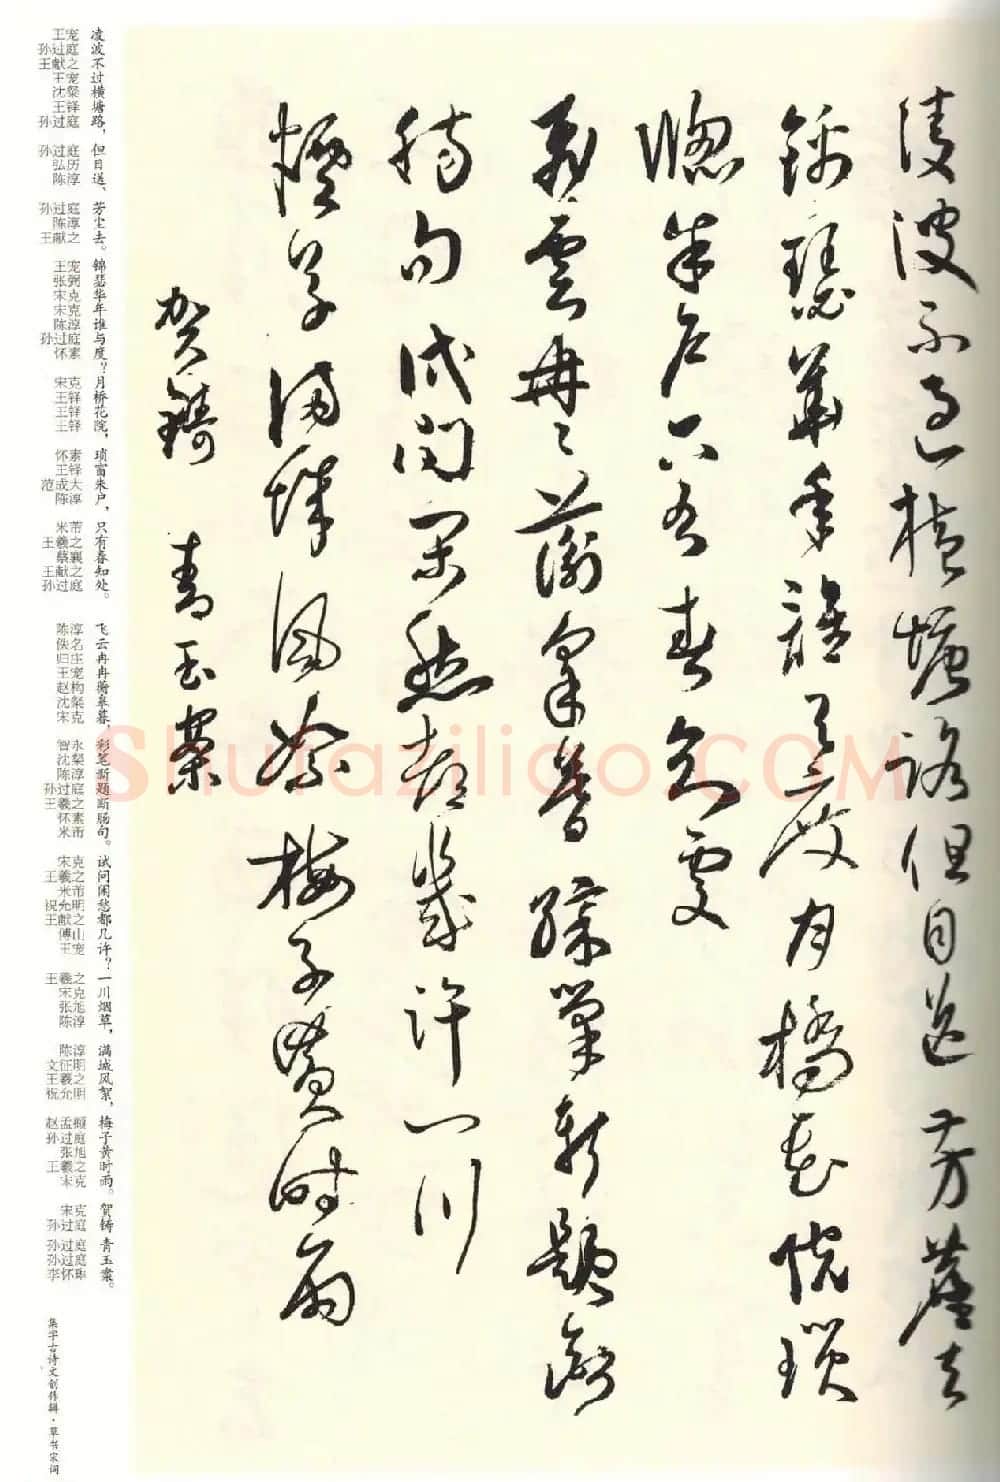 凌波不過橫塘路但目送芳塵去
錦瑟華年誰與度月橋花院瑣
牕朱戶只有春知處
飛雲冉冉蘅皋暮綵筆新題斷
腸句試問閑愁都幾許一川
煙草滿城風絮梅子黃時雨
賀鑄 青玉案
凌波不过横塘路，但目送、芳尘去。锦瑟华年谁与度？月桥花院，琐窗朱户，只有春知处。
飞云冉冉蘅皋暮，彩笔新题断肠句。试问闲愁都几许？一川烟草，满城风絮，梅子黄时雨。
贺铸 青玉案。
王宠
孙过庭
王献之
王宠
沈粲
王铎
孙过庭
孙过庭
弘历
陈淳
孙过庭
陈淳
王献之
王宠
张弼
宋克
宋克
陈淳
孙过庭
怀素
宋克
王铎
王铎
王铎
怀素
王铎
范成大
陈淳
米芾
王羲之
蔡襄
王献之
孙过庭
陈淳
佚名
归庄
王宠
赵构
沈粲
宋克
智永
沈粲
陈淳
孙过庭
王羲之
怀素
米芾
宋克
王羲之
米芾
祝允明
王献之
傅山
王宠
王羲之
宋克
张旭
陈淳
陈淳
文征明
王羲之
祝允明
赵孟頫
孙过庭
张旭
王羲之
宋克
宋克
孙过庭
孙过庭
孙过庭
李怀琳
集字古诗文创作辑·草书宋词
Shufaziliao.COM